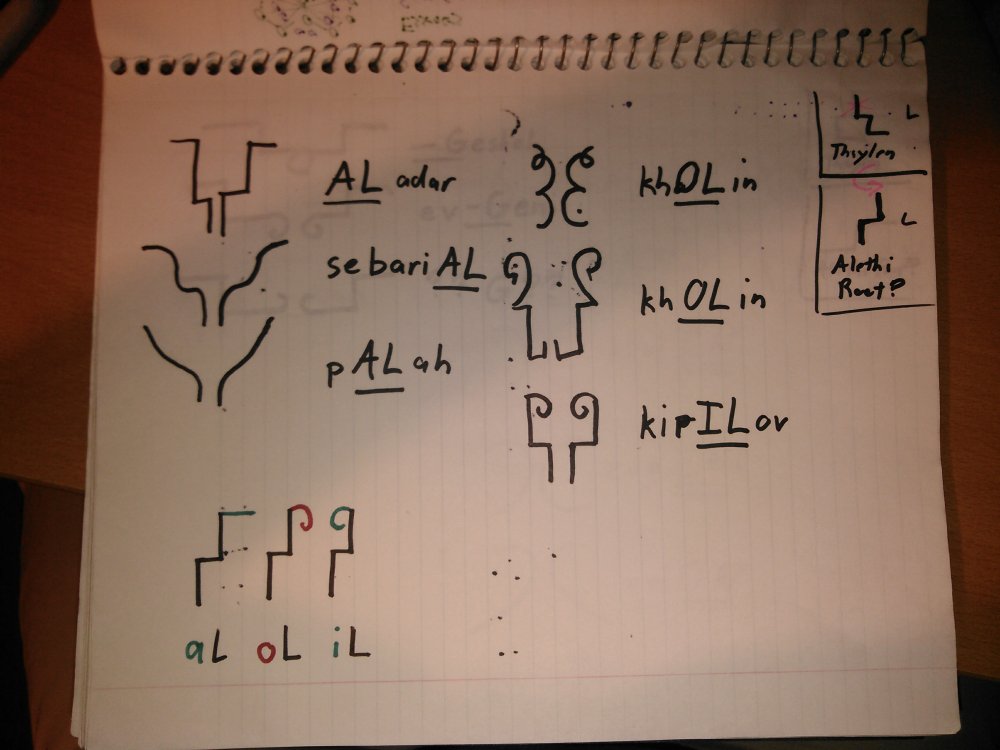 ALadar
sebariAL
pALah
khOLin
khOLin
kipILov
L
Thaylen
L
Alethi
Root?
aL oL iL